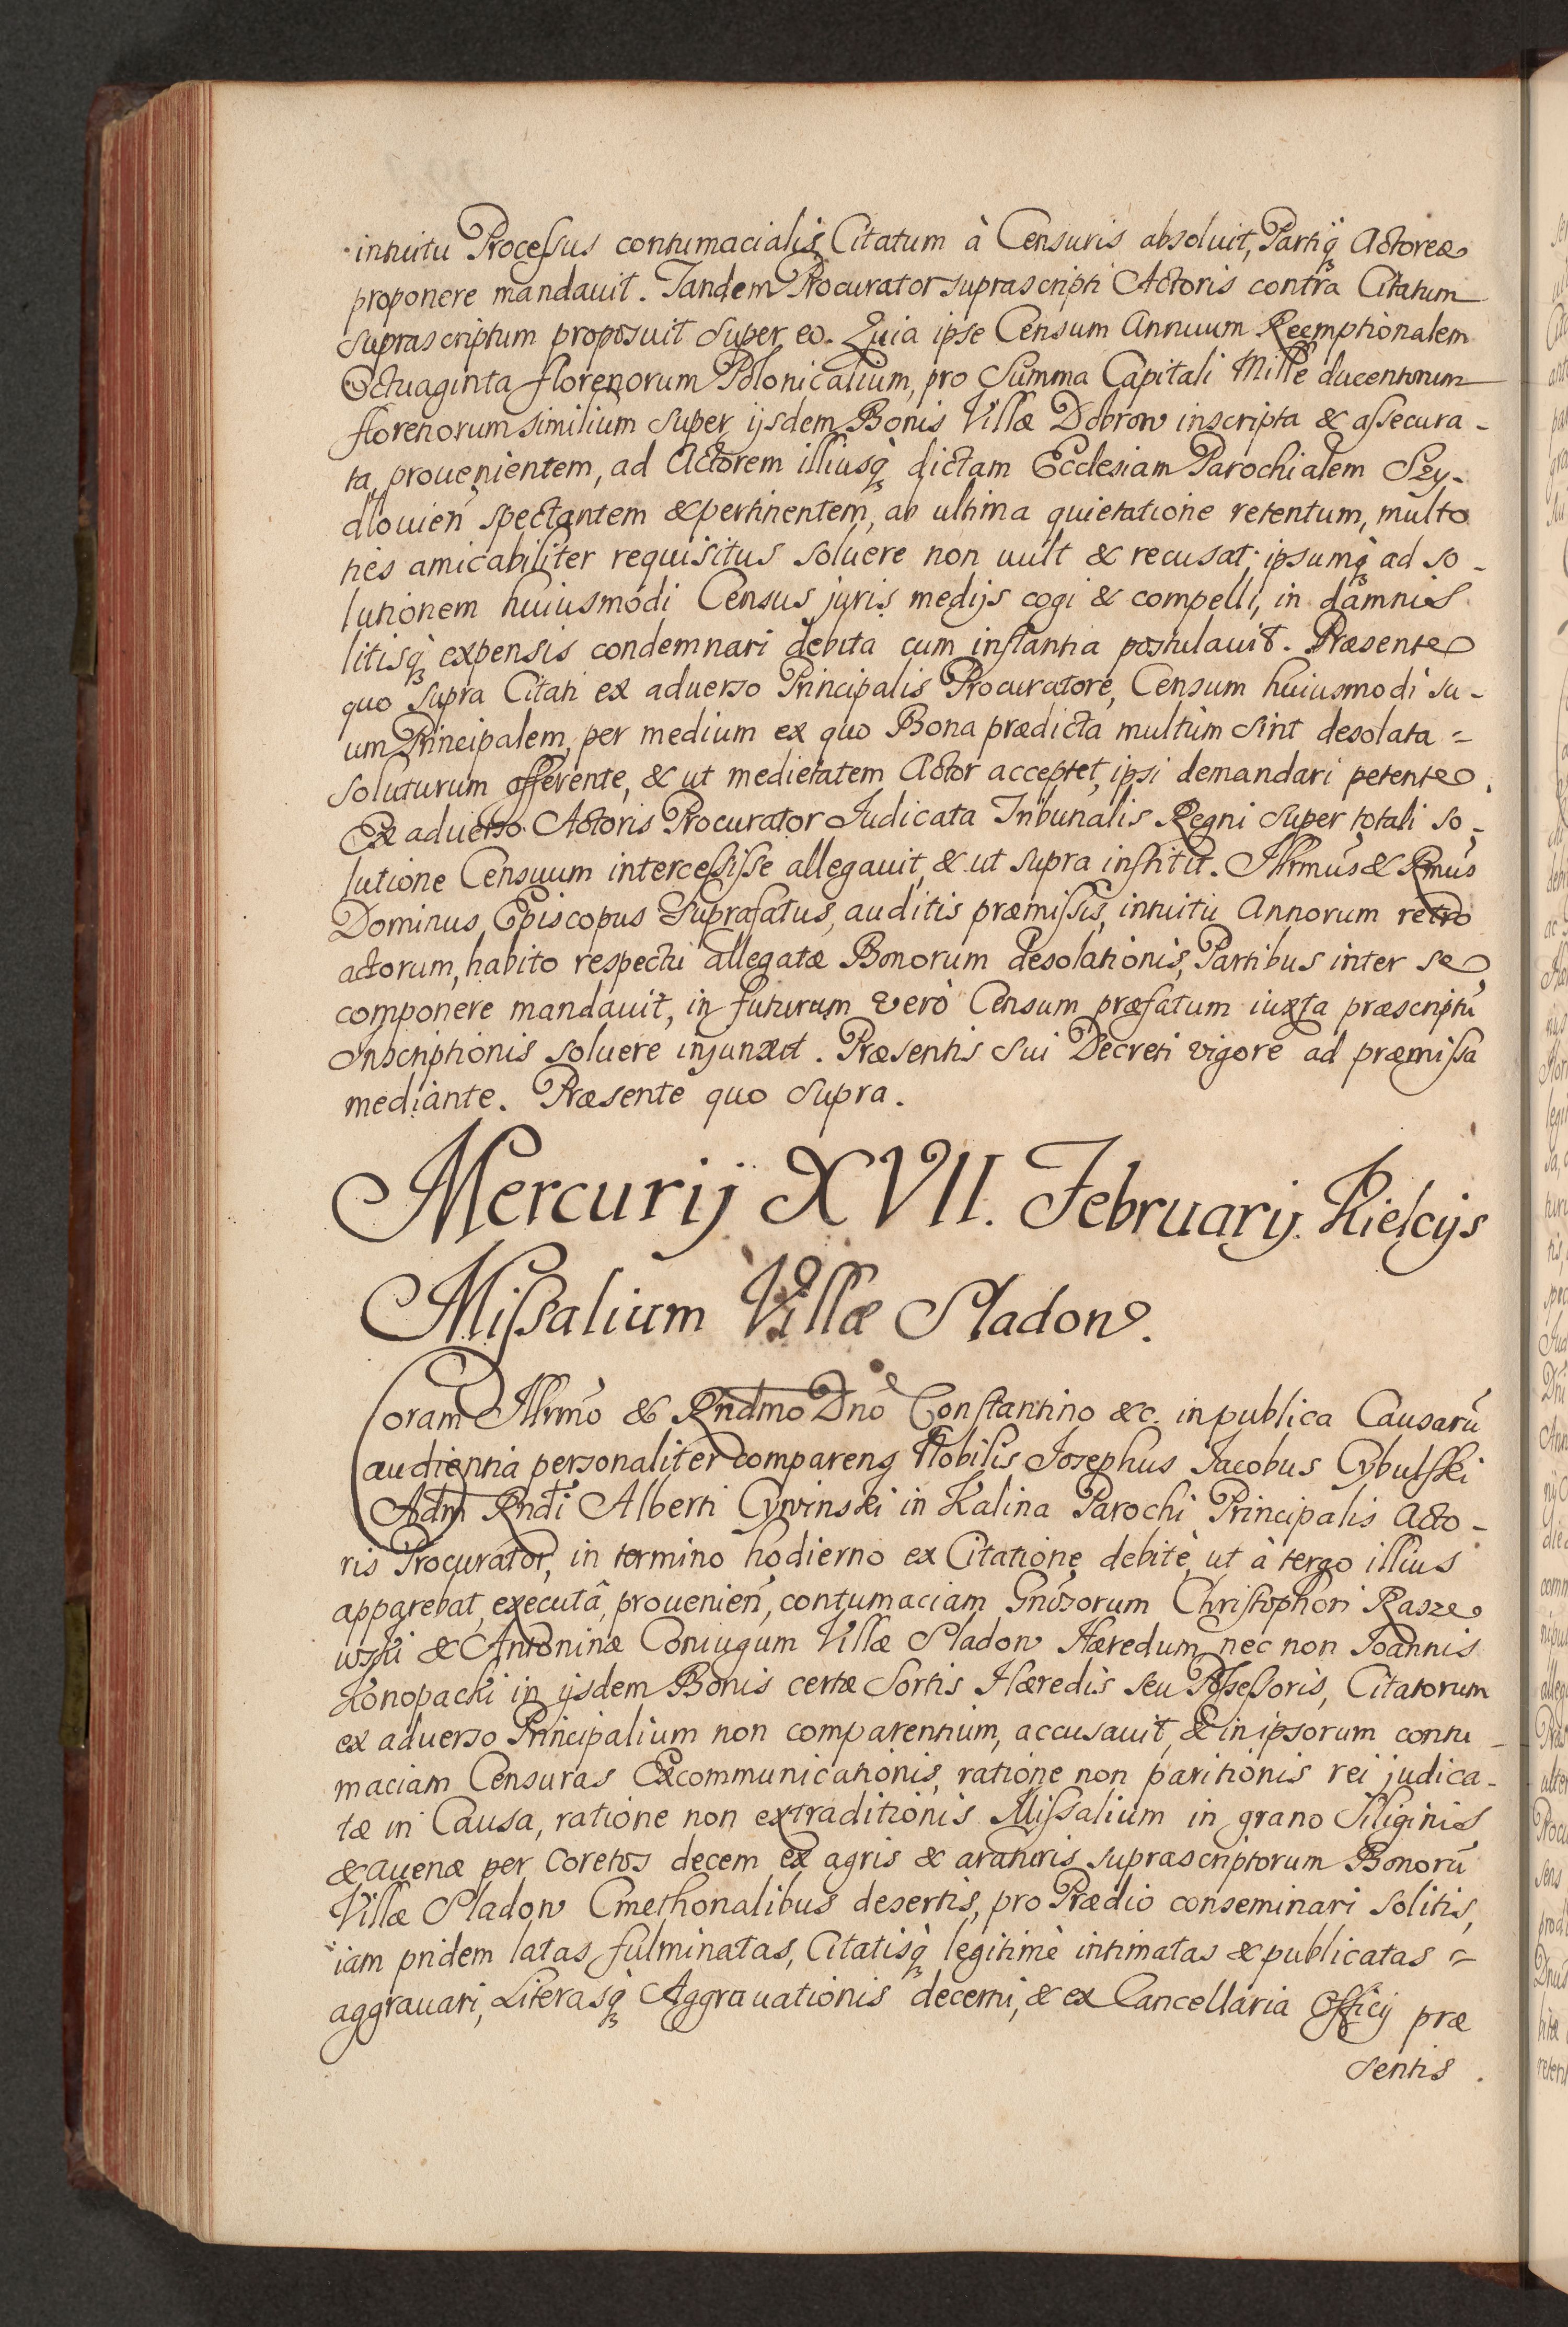 intuitu Processus contumacialis Citatum à Censuris absoluit, Partiq́ꝫ Actoreæ
proponere mandauit. Tandem Procurator suprascripti Actoris contra Citatum
suprascriptum proposuit super eo. Quia ipse Censum Annuum Reemptionalem
Octuaginta florenorum Polonicalium, pro Summa Capitali Mille ducentorum
florenorum similium super ijsdem Bonis Villæ Dobrow inscripta & assecura-
ta, prouenientem, ad Actorem illiusq́ꝫ dictam Ecclesiam Parochialem Szy-
dlouien̄ spectantem & pertinentem, ab ultima quietatione retentum, multo
ties amicabiliter requisitus soluere non uult & recusat; ipsumq́ꝫ ad so-
lutionem huiusmodi Census juris medijs cogi & compelli, in damnis
litisq́ꝫ expensis condemnari debita cum instantia postulauit. Præsente
quo supra Citati ex aduerso Principalis Procuratore, Censum huiusmodi su-
um Principalem, per medium ex quo Bona prædicta multùm sint desolata =
soluturum offerente, & ut medietatem Actor acceptet, ipsi demandari petente.
Ex aduerso Actoris Procurator Judicata Tribunalis Regni super totali so-
lutione Censuum intercessisse allegauit, & ut supra institit. Illrmūs & Rmūs
Dominus, Episcopus Suprafatus, auditis præmissis, intuitu Annorum retro
actorum, habito respectu allegatæ Bonorum desolationis, Partibus inter se
componere mandauit, in futurum verò Censum præfatum iuxta præscriptū
Inscriptionis soluere injunxit. Præsentis sui Decreti vigore ad præmissa
mediante. Præsente quo supra.
Mercurij XVII. Februarij. Kielcijs
Missalium Villæ Sladow.
Coram Illrmō & Rndmo Dnō Constantino &c. in publica Causarū
audientia personaliter comparens Nobilis Josephus Jacobus Cybulski
Adm Rndī Alberti Cywinski in Kalina Parochi Principalis Acto-
ris Procurator, in termino hodierno ex Citatione debitè, ut à tergo illius
apparebat, executâ, prouenien̄, contumaciam Gnōsorum Christophori Rasze
wski & Antoninæ Coniugum Villæ Sladow Hæredum, nec non Joannis
Konopacki in ijsdem Bonis certæ Sortis Hæredis seu Possessoris, Citatorum
ex aduerso Principalium non comparentium, accusauit, & in ipsorum contu-
maciam Censuras Excommunicationis, ratione non paritionis rei judica-
tæ in Causa, ratione non extraditionis Missalium in grano Siliginis
& auenæ per Coretos decem ex agris & araturis suprascriptorum Bonorū
Villæ Sladow Cmethonalibus desertis, pro Prædio conseminari solitis,
iam pridem latas fulminatas, Citatisq́ꝫ legitimè intimatas & publicatas =
aggrauari, Literasq́ꝫ Aggrauationis decerni, & ex Cancellaria Officij præ
sentis.